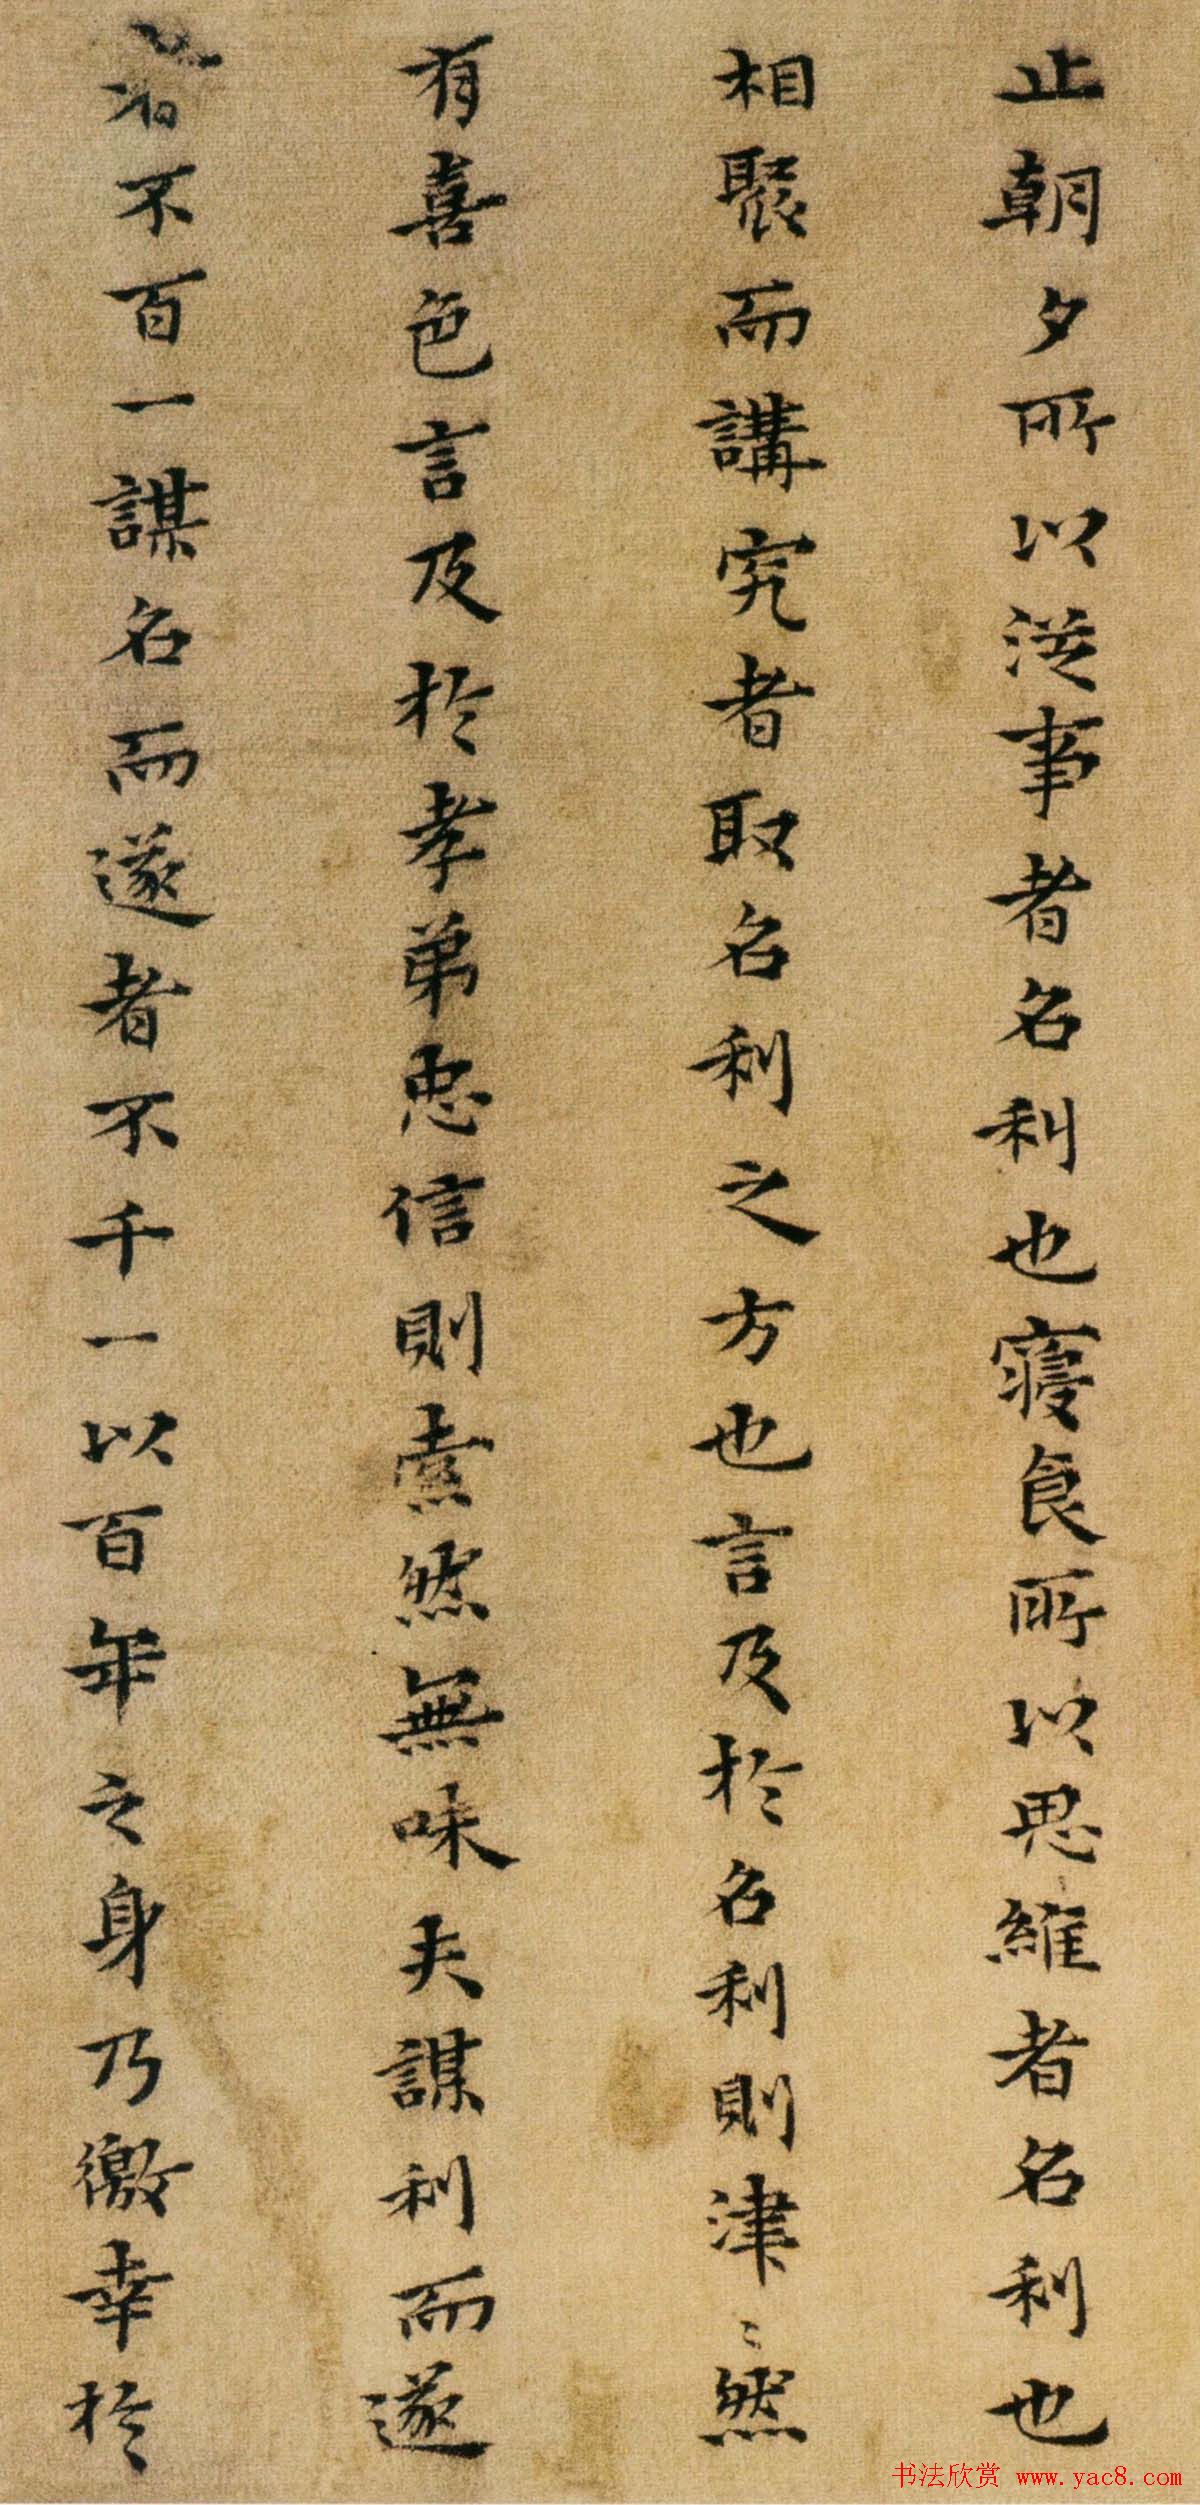 止朝夕所以従事者名利也寢食所以思維者名利也
相聚而講究者取名利之方也言及於名利則津〻然
有喜色言及於孝弟忠信則索然無味夫謀利而遂
者不百一謀名而遂者不千一以百年之身乃徼幸於
书法欣赏 www.yac8.com